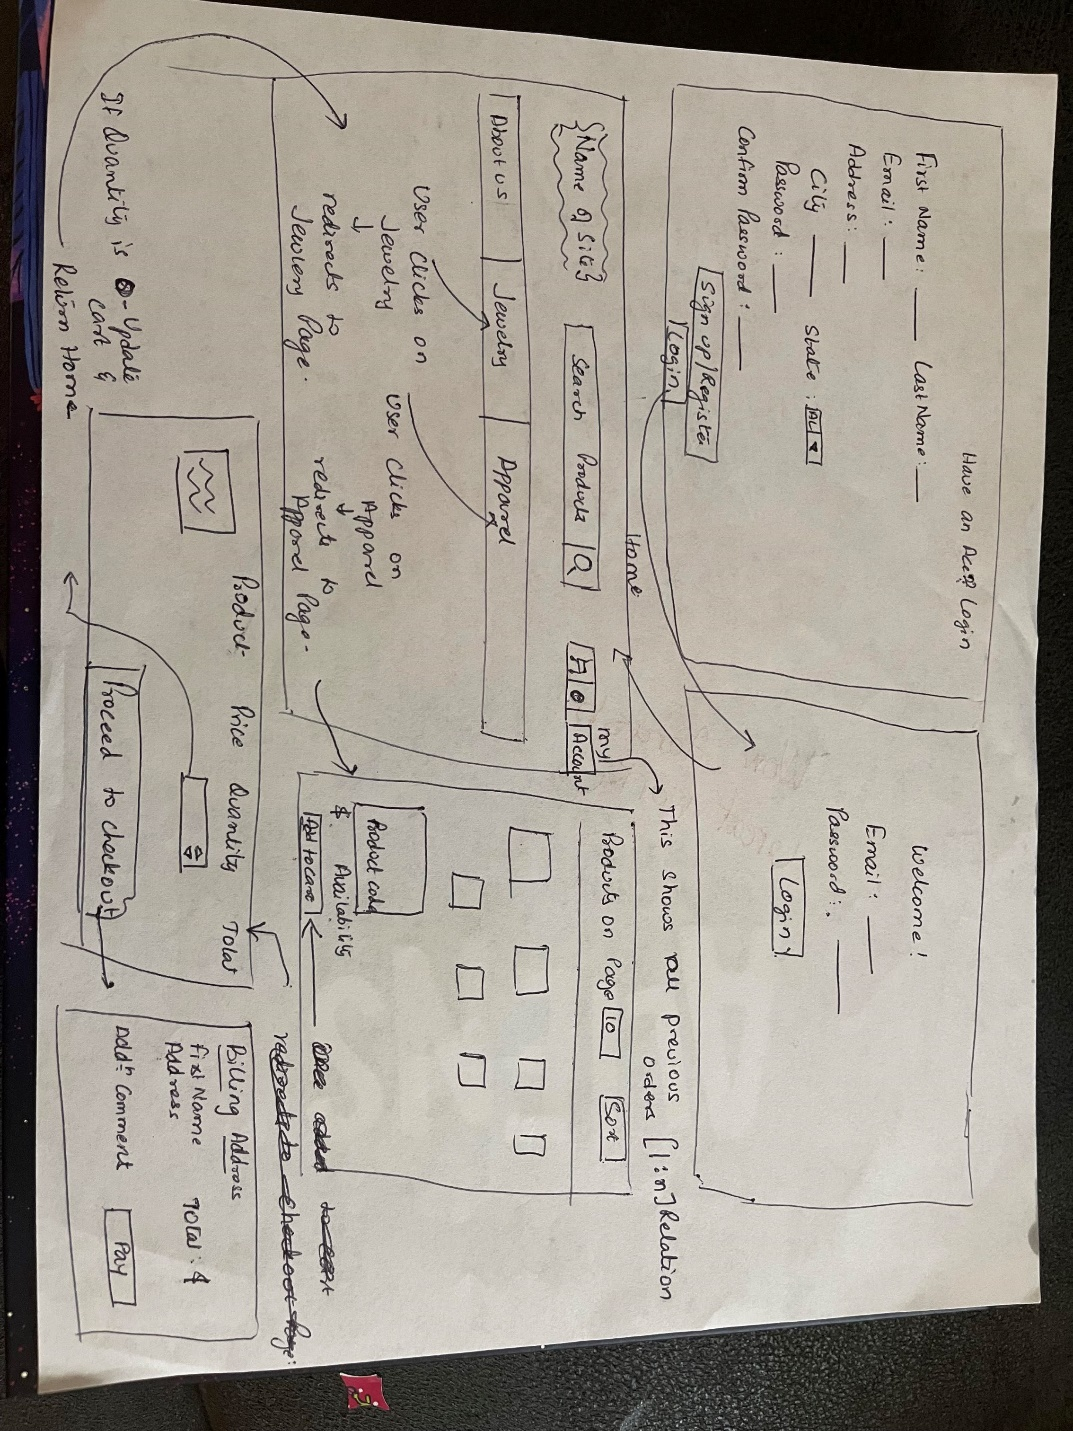 Have an Acc? Login
First Name: ____ Last Name: __
Email: ___
Address: ___
City ____ State: AL
Password: ___
Confirm Password: ___
Sign up/Register
Login
Welcome!
Email: ___
Password: ____
Login
Home
{Name of Site}
Search Products Q
My
Account
About us
Jewelry
Apparel
User Clicks on
Jewelry
redirects to
Jewlery Page.
User Clicks on
Apparel
redirects to
Apparel Page.
This shows all previous
orders [1:n] Relation
Products on Page 10 Sort
Product code
$ Availability
Add to cart
added to cart
redirected to Checkout Page:
If Quantity is 0 - Update
cart &
Return Home
Product Price Quantity Total
Proceed to checkout
Billing Address
First Name Total: $
Address
Addn Comment
Pay